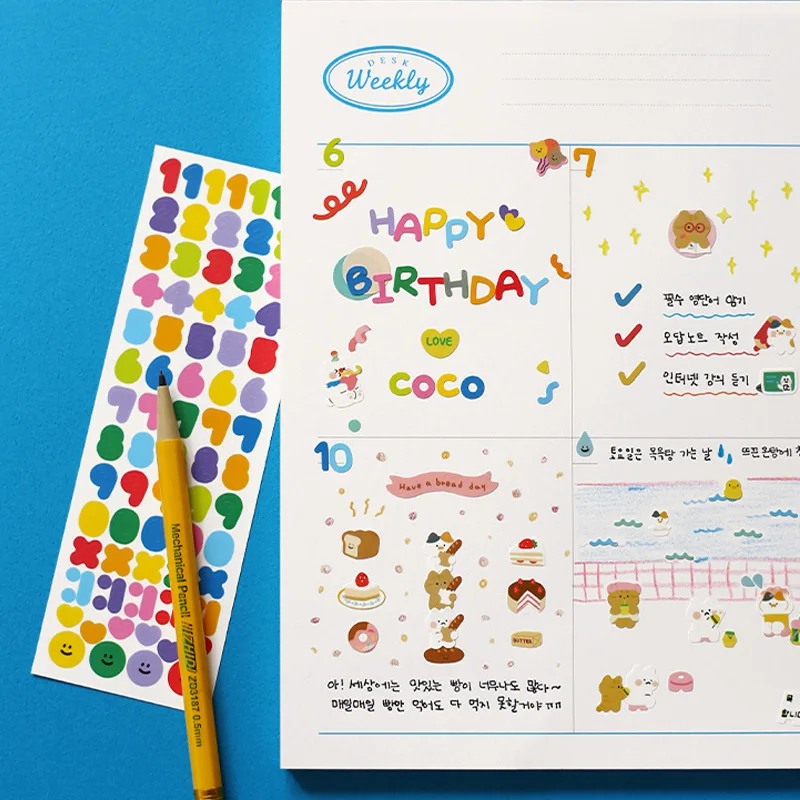 DESK
Weekly
6
HAPPY
BIRTHDAY
LOVE
COCO
7
필수 영단어 암기
오답노트 작성
인터넷 강의 듣기
10
Have a bread day
BUTTER
아! 세상에는 맛있는 빵이 너무나도 많다~
매일매일 빵만 먹어도 다 먹지 못할거야 ㅠㅠ
토요일은 목욕탕 가는 날 뜨끈한
Mechanical Pencil
ZD3187 0.5mm